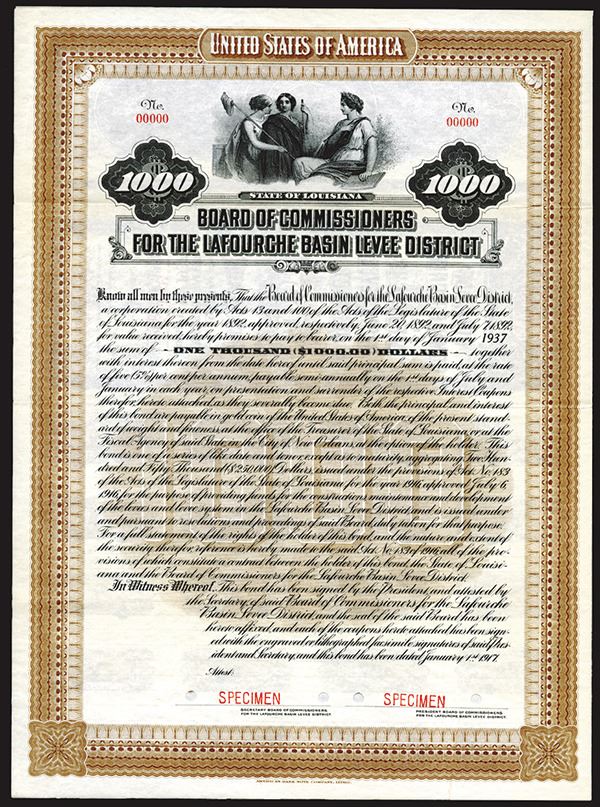 UNITED STATES OF AMERICA
No. No.
00000 00000
1000 1000
STATE OF LOUISIANA
BOARD OF COMMISSIONERS
FOR THE LAFOURCHE BASIN LEVEE DISTRICT
Know all men by these presents, That the Board of Commissioners for the Lafourche Basin Levee District,
a corporation created by Acts 13 and 100 of the Acts of the Legislature of the State
of Louisiana for the year 1892, approved, respectively, June 20, 1892, and July 7, 1892,
for value received, hereby promises to pay to bearer, on the 1st day of January 1937
the sum of ONE THOUSAND ($1000.00) DOLLARS together
with interest thereon from the date hereof until said principal sum is paid, at the rate
of five (5%) per cent per annum, payable semi-annually on the 1st days of July and
January in each year, on presentation and surrender of the respective Interest Coupons
therefor, hereto attached, as they severally become due. Both the principal and interest
of this bond are payable in gold coin of the United States of America, of the present stand-
ard of weight and fineness, at the office of the Treasurer of the State of Louisiana, or at the
Fiscal Agency of said State in the City of New Orleans, at the option of the holder. This
bond is one of a series of like date and tenor, except as to maturity, aggregating Two Hun-
dred and Fifty Thousand ($250,000) Dollars, issued under the provisions of Act No. 183
of the Acts of the Legislature of the State of Louisiana for the year 1916, approved July 6,
1916, for the purpose of providing funds for the construction, maintenance and development
of the levees and levee system in the Lafourche Basin Levee District, and is issued under
and pursuant to resolutions and proceedings of said Board, duly taken for that purpose.
For a full statement of the rights of the holder of this bond, and the nature and extent of
the security therefor, reference is hereby made to the said Act No. 183 of 1916, all of the pro-
visions of which constitute a contract between the holder of this bond, the State of Louisi-
ana and the Board of Commissioners for the Lafourche Basin Levee District.
In Witness Whereof, This bond has been signed by the President, and attested by
the Secretary, of said Board of Commissioners for the Lafourche
Basin Levee District, and the seal of the said Board has been
hereto affixed, and each of the coupons hereto attached has been sign-
ed with the engraved or lithographed facsimile signatures of said Pres-
ident and Secretary, and this bond has been dated January 1st 1917.
Attest:
SPECIMEN SPECIMEN
SECRETARY BOARD OF COMMISSIONERS PRESIDENT BOARD OF COMMISSIONERS
FOR THE LAFOURCHE BASIN LEVEE DISTRICT. FOR THE LAFOURCHE BASIN LEVEE DISTRICT.
AMERICAN BANK NOTE COMPANY,